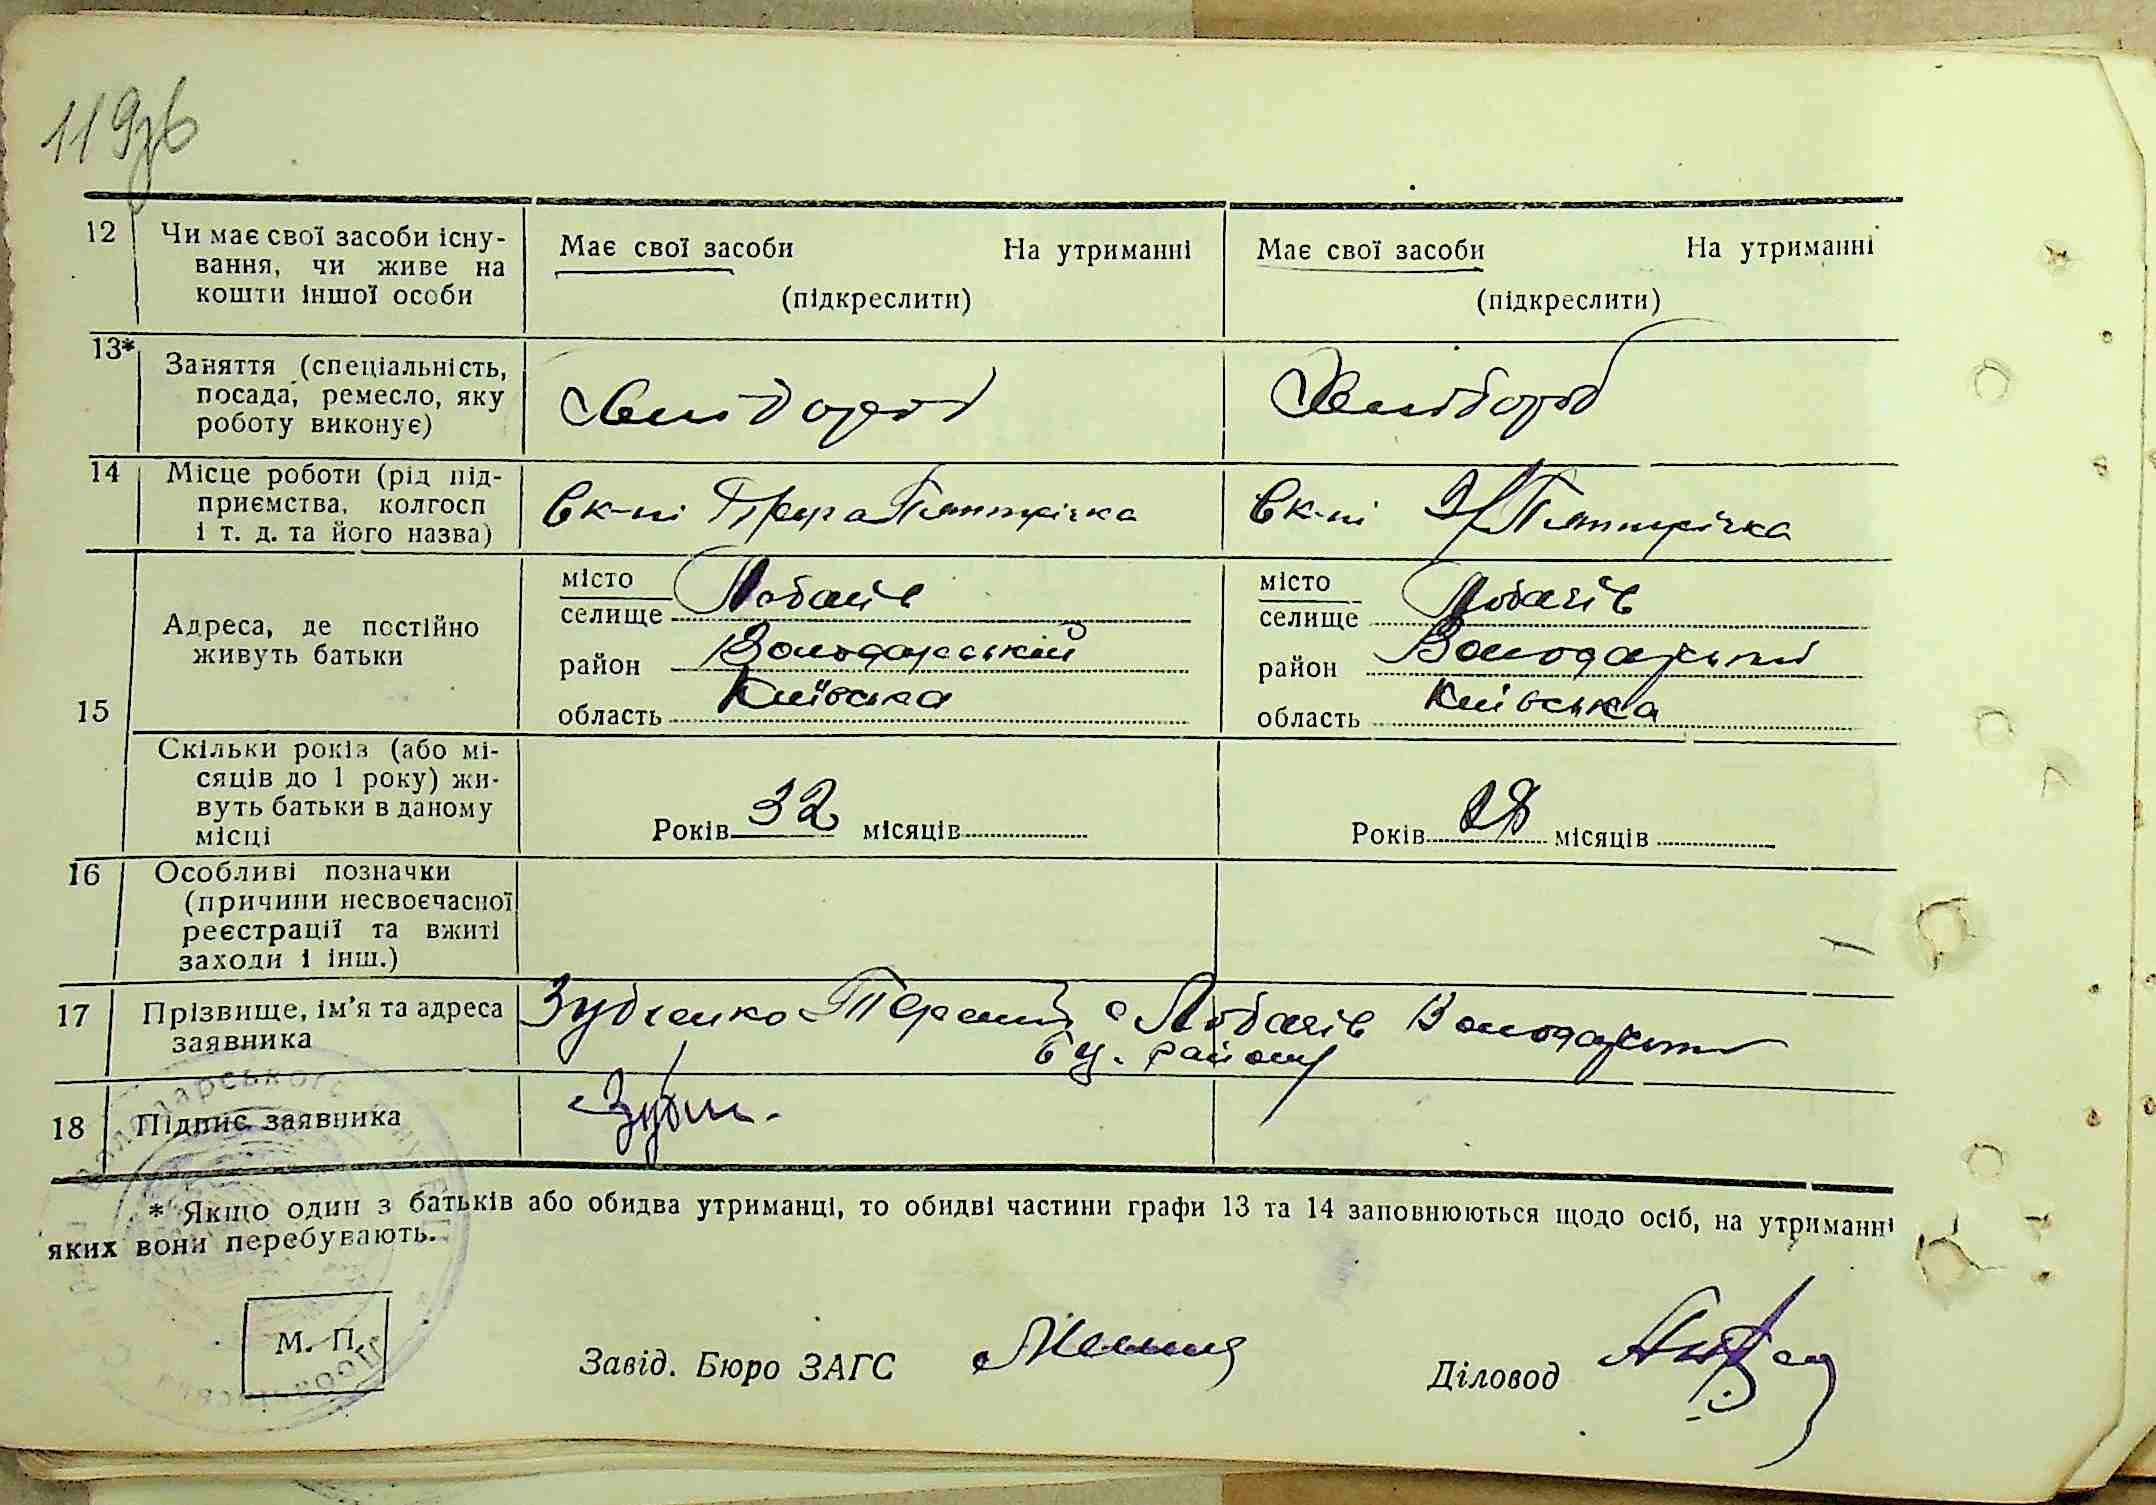 119зв
12 Чи має свої засоби існу-
вання, чи живе на
кошти іншої особи
Має свої засоби На утриманні
(підкреслити)
Має свої засоби На утриманні
(підкреслити)
13* Заняття (спеціальність,
посада, ремесло, яку
роботу виконує)
Хлібороб
Хлібороб
14 Місце роботи (рід під-
приємства, колгосп
і т. д. та його назва)
Друга Пятирічка
2/Пятирічка
15
Адреса, де постійно
живуть батьки
місто
селище Лобачів
район Володарський
область Київська
місто
селище Лобачів
район Володарський
область Київська
Скільки років (або мі-
сяців до 1 року) жи-
вуть батьки в даному
місці
Років 32 місяців
Років 28 місяців
16 Особливі позначки
(причини несвоєчасної
реєстрації та вжиті
заходи і інш.)
17 Прізвище, ім'я та адреса
заявника
Зубченко с Лобачів Володарський
району
18 Підпис заявника
* Якщо один з батьків або обидва утриманці, то обидві частини графи 13 та 14 заповнюються щодо осіб, на утриманні
яких вони перебувають.
М. П.
Завід. Бюро ЗАГС
Діловод